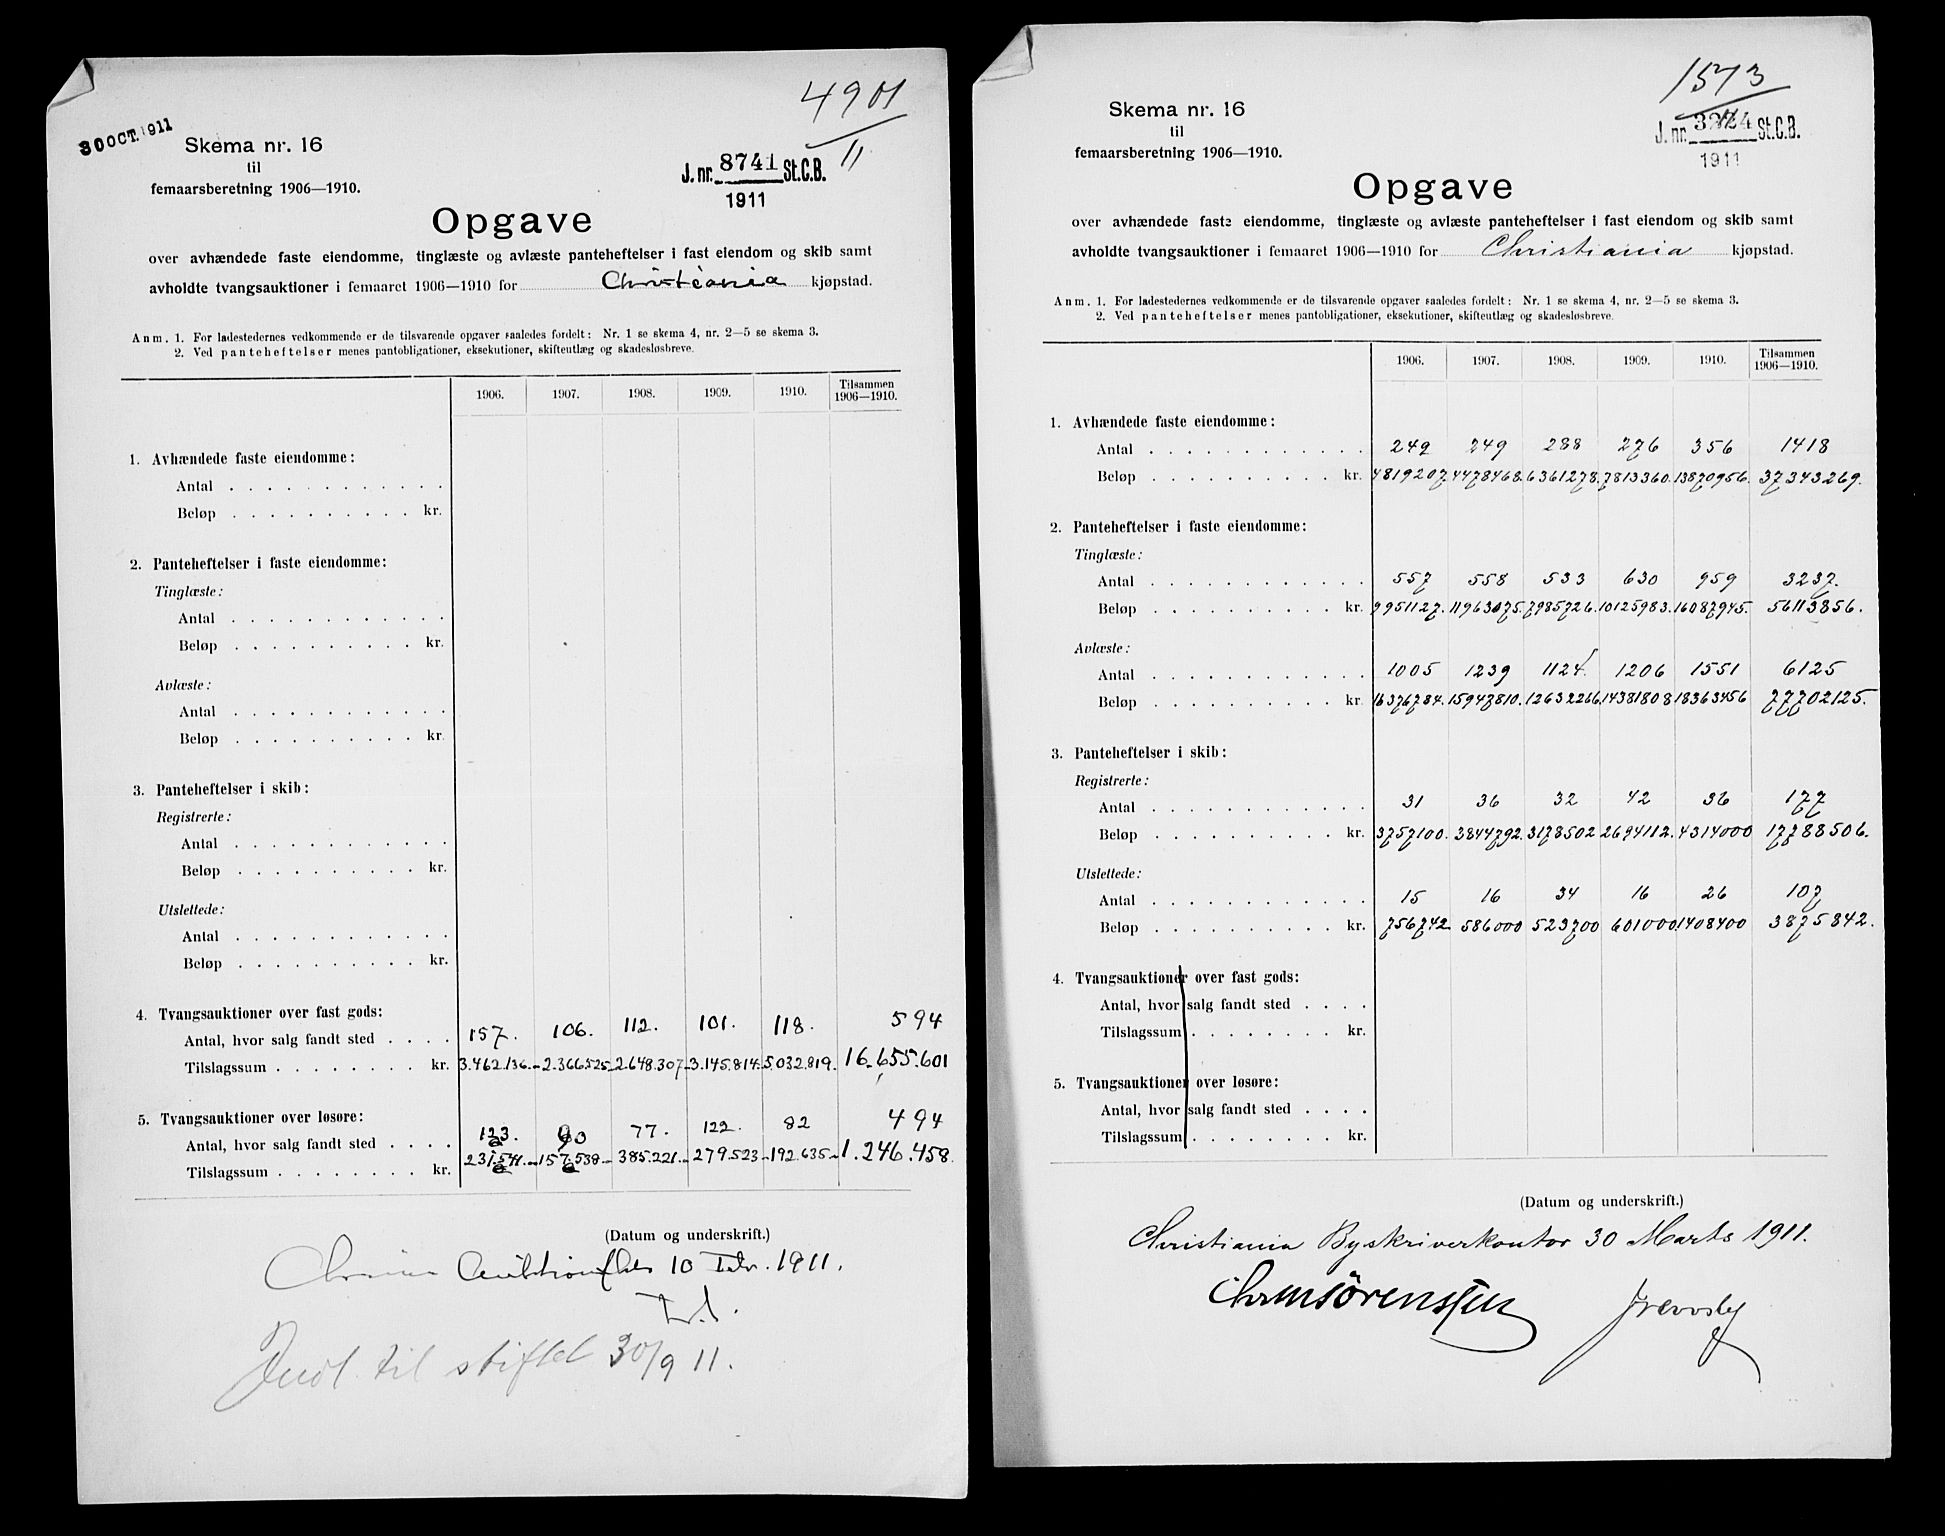 30 OCT. 1911
4901
11
Skema nr. 16
til
femaarsberetning 1906—1910.
J. nr. 8741 St.C.B.
1911
Opgave
over avhændede faste eiendomme, tinglæste og avlæste panteheftelser i fast eiendom og skib samt
avholdte tvangsauktioner i femaaret 1906—1910 for Christiania kjøpstad.
Anm. 1. For ladestedernes vedkommende er de tilsvarende opgaver saaledes fordelt: Nr. 1 se skema 4, nr. 2—5 se skema 3.
2. Ved panteheftelser menes pantobligationer, eksekutioner, skifteutlæg og skadesløsbreve.
1906. 1907. 1908. 1909. 1910. Tilsammen
1906—1910.
1. Avhændede faste eiendomme:
Antal . . . . . . . . . . . .
Beløp . . . . . . . . . . kr.
2. Panteheftelser i faste eiendomme:
Tinglæste:
Antal . . . . . . . . . . . .
Beløp . . . . . . . . . . kr.
Avlæste:
Antal . . . . . . . . . . . .
Beløp . . . . . . . . . . kr.
3. Panteheftelser i skib:
Registrerte:
Antal . . . . . . . . . . . .
Beløp . . . . . . . . . . kr.
Utslettede:
Antal . . . . . . . . . . . .
Beløp . . . . . . . . . . kr.
4. Tvangsauktioner over fast gods:
Antal, hvor salg fandt sted . . . . 157. 106. 112. 101. 118. 594
Tilslagssum . . . . . . . . kr. 3.462.136.- 2.366.525- 2.648.307- 3.145.814- 5.032.819. 16.655.601
5. Tvangsauktioner over løsøre:
Antal, hvor salg fandt sted . . . . 123. 90 77. 122. 82 494
Tilslagssum . . . . . . . . kr. 231.541.- 157.538- 385.221- 279.523- 192.635- 1.246.458
(Datum og underskrift.)
10 1911.
Indl. til stiftet 30/9 11.
1573
11
Skema nr. 16
til
femaarsberetning 1906—1910.
J. nr. 3224 St.C.B.
1911
Opgave
over avhændede faste eiendomme, tinglæste og avlæste panteheftelser i fast eiendom og skib samt
avholdte tvangsauktioner i femaaret 1906—1910 for Christiania kjøpstad.
Anm. 1. For ladestedernes vedkommende er de tilsvarende opgaver saaledes fordelt: Nr. 1 se skema 4, nr. 2—5 se skema 3.
2. Ved panteheftelser menes pantobligationer, eksekutioner, skifteutlæg og skadesløsbreve.
1906. 1907. 1908. 1909. 1910. Tilsammen
1906—1910.
1. Avhændede faste eiendomme:
Antal . . . . . . . . . . . . 249 249 288 276 356 1418
Beløp . . . . . . . . . . kr. 4819207. 4478468. 6361278. 7813360. 13870956. 37343269.
2. Panteheftelser i faste eiendomme:
Tinglæste:
Antal . . . . . . . . . . . . 557 558 533 630 959 3237.
Beløp . . . . . . . . . . kr. 9951127. 11963075. 7985726. 10125983. 16087945. 56113856.
Avlæste:
Antal . . . . . . . . . . . . 1005 1239 1124. 1206 1551 6125
Beløp . . . . . . . . . . kr. 16376784. 15947810. 12632266. 14381808 18363456 77702125.
3. Panteheftelser i skib:
Registrerte:
Antal . . . . . . . . . . . . 31 36 32 42 36 177
Beløp . . . . . . . . . . kr. 3757100. 3844792. 3178502 2694112. 4314000 17788506.
Utslettede:
Antal . . . . . . . . . . . . 15 16 34 16 26 107
Beløp . . . . . . . . . . kr. 756742. 586000 523700 601000 1408400 3875842.
4. Tvangsauktioner over fast gods:
Antal, hvor salg fandt sted . . . .
Tilslagssum . . . . . . . . kr.
5. Tvangsauktioner over løsøre:
Antal, hvor salg fandt sted . . . .
Tilslagssum . . . . . . . . kr.
(Datum og underskrift.)
Christiania Byskriverkontor 30 Marts 1911.